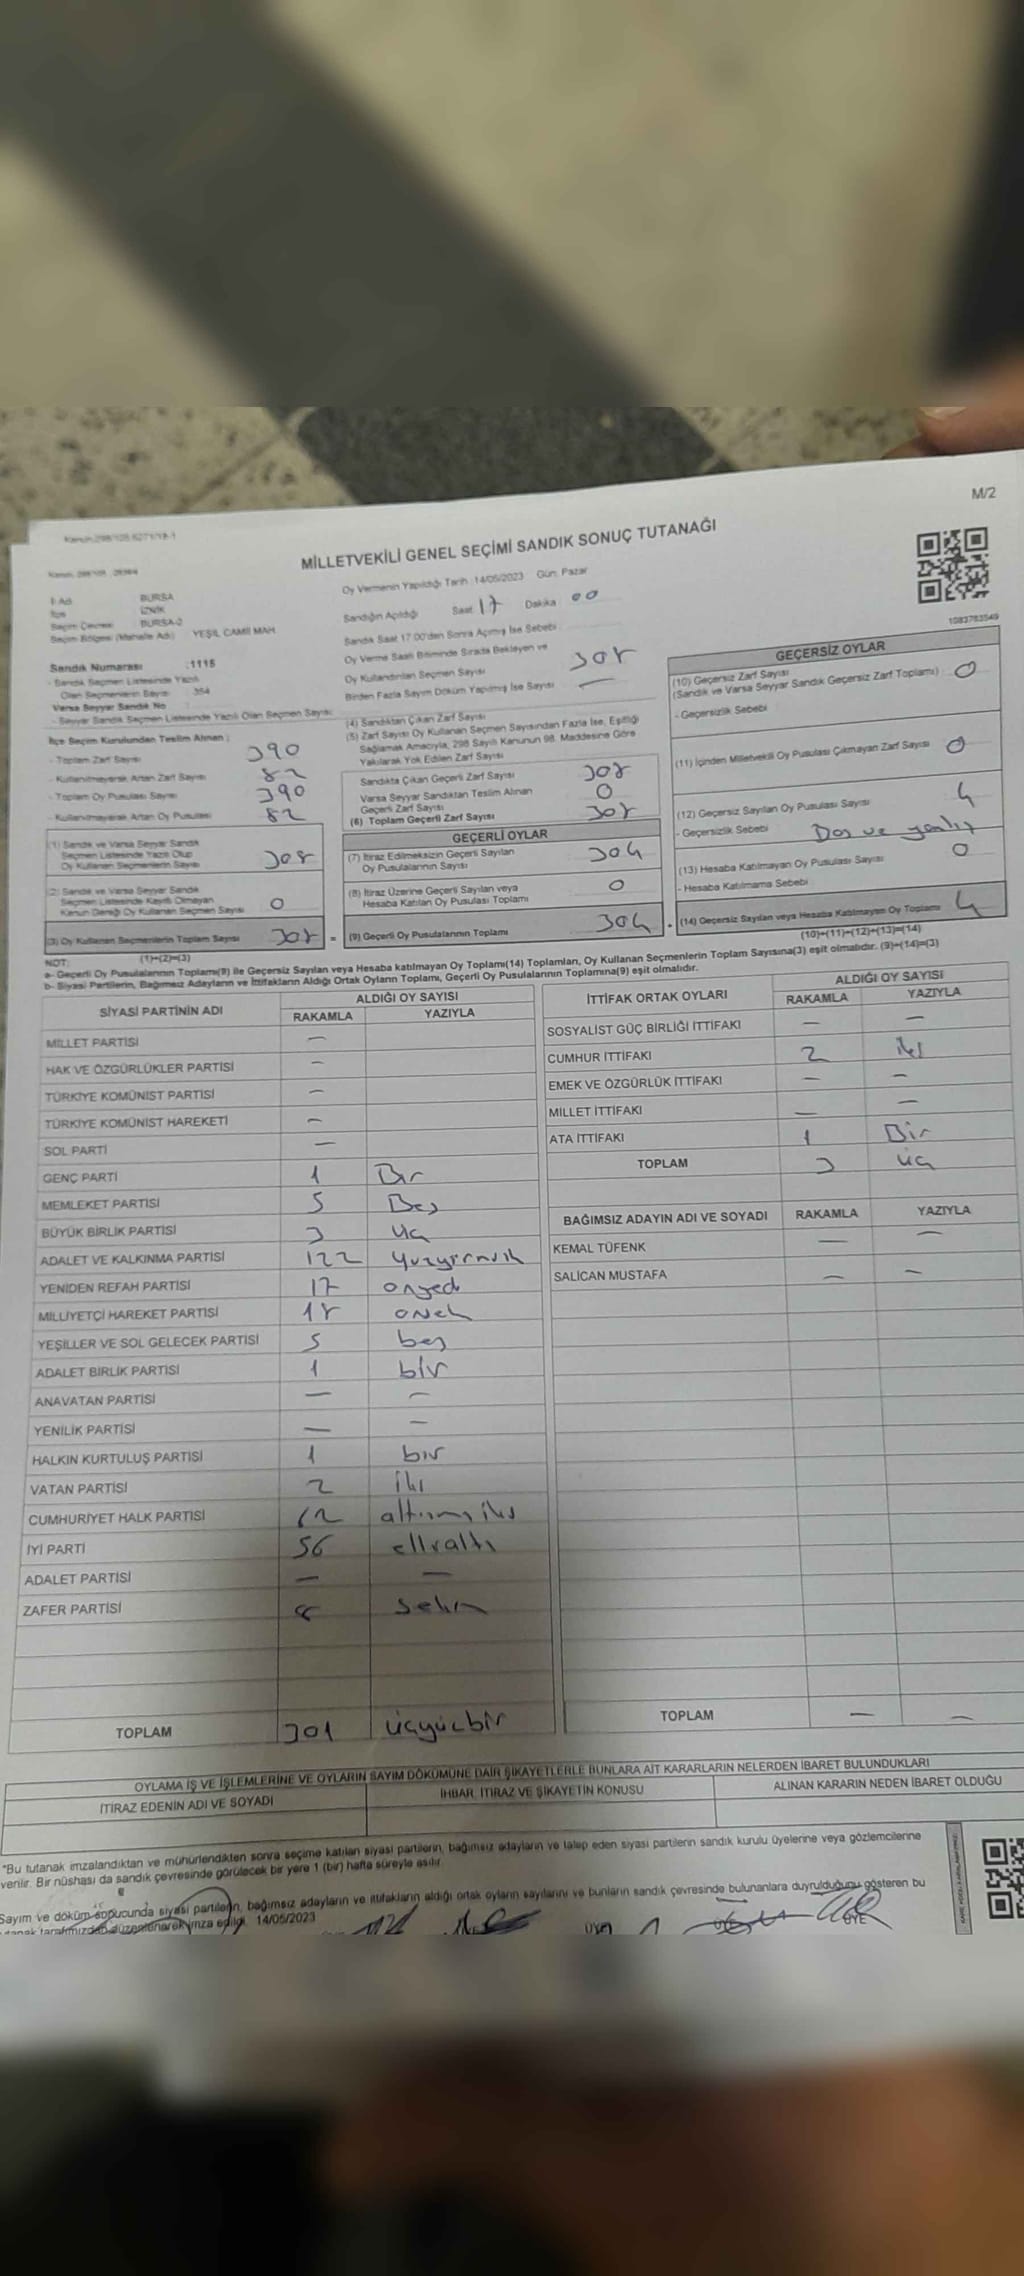 M/2
MİLLETVEKİLİ GENEL SEÇİMİ SANDIK SONUÇ TUTANAĞI
1083763549
İl Adı BURSA
İlçe İZNİK
Seçim Çevresi BURSA-2
Seçim Bölgesi (Mahalle Adı) YEŞİL CAMİİ MAH
Sandık Numarası :1115
- Sandık Seçmen Listesinde Yazılı
Olan Seçmenlerin Sayısı 354
Varsa Seyyar Sandık No
- Seyyar Sandık Seçmen Listesinde Yazılı Olan Seçmen Sayısı:
İlçe Seçim Kurulundan Teslim Alınan :
- Toplam Zarf Sayısı 390
- Kullanılmayarak Artan Zarf Sayısı 82
- Toplam Oy Pusulası Sayısı 390
- Kullanılmayarak Artan Oy Pusulası 82
(1) Sandık ve Varsa Seyyar Sandık
Seçmen Listesinde Yazılı Olup
Oy Kullanan Seçmenlerin Sayısı 308
(2) Sandık ve Varsa Seyyar Sandık
Seçmen Listesinde Kayıtlı Olmayan
Kanun Gereği Oy Kullanan Seçmen Sayısı 0
(3) Oy Kullanan Seçmenlerin Toplam Sayısı 308 =
(1)+(2)=(3)
Oy Vermenin Yapıldığı Tarih :14/05/2023 Gün: Pazar
Sandığın Açıldığı Saat 17 Dakika 00
Sandık Saat 17:00'den Sonra Açılmış İse Sebebi
Oy Verme Saati Bitiminde Sırada Bekleyen ve
Oy Kullandırılan Seçmen Sayısı 308
Birden Fazla Sayım Döküm Yapılmış İse Sayısı —
(4) Sandıktan Çıkan Zarf Sayısı
(5) Zarf Sayısı Oy Kullanan Seçmen Sayısından Fazla İse, Eşitliği
Sağlamak Amacıyla, 298 Sayılı Kanunun 98. Maddesine Göre
Yakılarak Yok Edilen Zarf Sayısı
Sandıkta Çıkan Geçerli Zarf Sayısı 308
Varsa Seyyar Sandıktan Teslim Alınan
Geçerli Zarf Sayısı 0
(6) Toplam Geçerli Zarf Sayısı 308
GEÇERLİ OYLAR
(7) İtiraz Edilmeksizin Geçerli Sayılan
Oy Pusulasının Sayısı 304
(8) İtiraz Üzerine Geçerli Sayılan veya
Hesaba Katılan Oy Pusulası Toplamı 0
(9) Geçerli Oy Pusulalarının Toplamı 304 +
GEÇERSİZ OYLAR
(10) Geçersiz Zarf Sayısı
(Sandık ve Varsa Seyyar Sandık Geçersiz Zarf Toplamı) 0
- Geçersizlik Sebebi
(11) İçinden Milletvekili Oy Pusulası Çıkmayan Zarf Sayısı 0
(12) Geçersiz Sayılan Oy Pusulası Sayısı 4
- Geçersizlik Sebebi
(13) Hesaba Katılmayan Oy Pusulası Sayısı 0
- Hesaba Katılmama Sebebi
(14) Geçersiz Sayılan veya Hesaba Katılmayan Oy Toplamı 4
(10)+(11)+(12)+(13)=(14)
NOT:
a- Geçerli Oy Pusulalarının Toplamı(9) ile Geçersiz Sayılan veya Hesaba katılmayan Oy Toplamı(14) Toplamları, Oy Kullanan Seçmenlerin Toplam Sayısına(3) eşit olmalıdır. (9)+(14)=(3)
b- Siyasi Partilerin, Bağımsız Adayların ve İttifakların Aldığı Ortak Oyların Toplamı, Geçerli Oy Pusulalarının Toplamına(9) eşit olmalıdır.
SİYASİ PARTİNİN ADI ALDIĞI OY SAYISI
RAKAMLA YAZIYLA
MİLLET PARTİSİ —
HAK VE ÖZGÜRLÜKLER PARTİSİ —
TÜRKİYE KOMÜNİST PARTİSİ —
TÜRKİYE KOMÜNİST HAREKETİ —
SOL PARTİ —
GENÇ PARTİ 1 Bir
MEMLEKET PARTİSİ 5 Beş
BÜYÜK BİRLİK PARTİSİ 3 Üç
ADALET VE KALKINMA PARTİSİ 122 yuzyirmiik
YENİDEN REFAH PARTİSİ 17 onyedi
MİLLİYETÇİ HAREKET PARTİSİ 18
YEŞİLLER VE SOL GELECEK PARTİSİ 5 beş
ADALET BİRLİK PARTİSİ 1 bir
ANAVATAN PARTİSİ — —
YENİLİK PARTİSİ — —
HALKIN KURTULUŞ PARTİSİ 1 bir
VATAN PARTİSİ 2 iki
CUMHURİYET HALK PARTİSİ 62 altmış iki
İYİ PARTİ 56 ellialtı
ADALET PARTİSİ — —
ZAFER PARTİSİ 8 sekiz
TOPLAM 301 üçyüzbir
İTTİFAK ORTAK OYLARI ALDIĞI OY SAYISI
RAKAMLA YAZIYLA
SOSYALİST GÜÇ BİRLİĞİ İTTİFAKI — —
CUMHUR İTTİFAKI 2 iki
EMEK VE ÖZGÜRLÜK İTTİFAKI — —
MİLLET İTTİFAKI — —
ATA İTTİFAKI 1 Bir
TOPLAM 3 üç
BAĞIMSIZ ADAYIN ADI VE SOYADI RAKAMLA YAZIYLA
KEMAL TÜFENK — —
SALİCAN MUSTAFA — —
TOPLAM — —
OYLAMA İŞ VE İŞLEMLERİNE VE OYLARIN SAYIM DÖKÜMÜNE DAİR ŞİKAYETLERLE BUNLARA AİT KARARLARIN NELERDEN İBARET BULUNDUKLARI
İTİRAZ EDENİN ADI VE SOYADI İHBAR, İTİRAZ VE ŞİKAYETİN KONUSU ALINAN KARARIN NEDEN İBARET OLDUĞU
*Bu tutanak imzalandıktan ve mühürlendikten sonra seçime katılan siyasi partilerin, bağımsız adayların ve talep eden siyasi partilerin sandık kurulu üyelerine veya gözlemcilerine
verilir. Bir nüshası da sandık çevresinde görülecek bir yere 1 (bir) hafta süreyle asılır.
Sayım ve döküm sonucunda siyasi partilerin, bağımsız adayların ve ittifakların aldığı ortak oyların sayılarını ve bunların sandık çevresinde bulunanlara duyrulduğunu gösteren bu
tutanak tarafımızdan düzenlenerek imza edildi. 14/05/2023
ÜYE